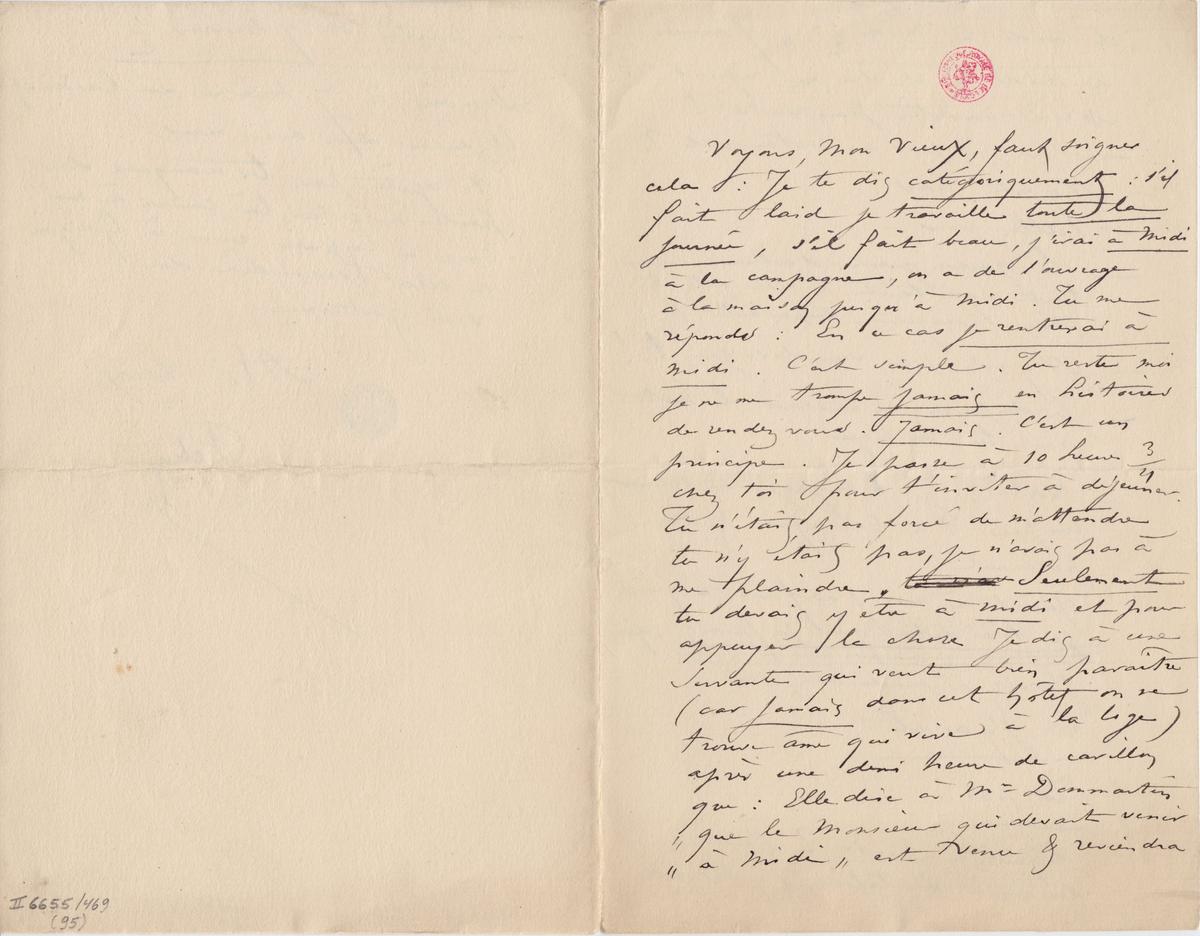 Voyons, mon vieux, faut soigner
cela : Je te dis catégoriquement : s'il
fait laid je travaille toute la
journée, s'il fait beau, j'irai à midi
à la campagne, on a de l'ouvrage
à la maison jusqu'à midi. Tu me
réponds : En ce cas je rentrerai à
midi. C'est simple. Tu reste moi
je ne me trompe jamais en histoires
de rendez vous. Jamais. C'est un
principe. Je passe à 10 heure 3/4
chez toi pour t'inviter à déjeuner.
Tu n'étais pas forcé de m'attendre
tu n'y étais pas, je n'avais pas à
me plaindre. Seulement
tu devais y être à midi et pour
appuyer la chose Je dis à une
Servante qui veut bien paraître
(car jamais dans cet hôtel on ne
trouve âme qui vive à la loge)
après une demi heure de carillon
que : Elle dise à Mr Dommartin
„ que le Monsieur qui devait venir
„ à Midi „ est venu & reviendra
II 6655/469
(95)